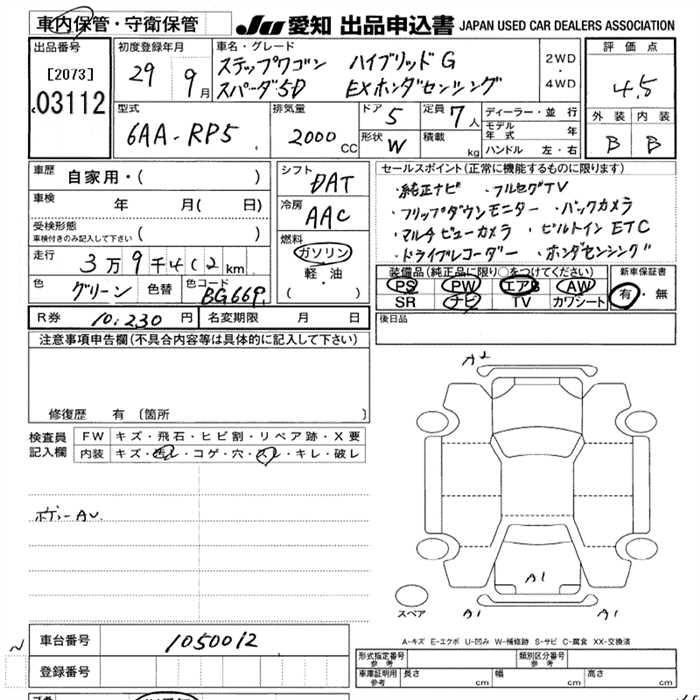 車内保管・守衛保管
JU 愛知 出品申込書 JAPAN USED CAR DEALERS ASSOCIATION
出品番号
[2073]
03112
初度登録年月
29 9月
車名・グレード
ステップワゴン ハイブリッドG
スパーダ5D EXホンダセンシング
2WD
・
4WD
評価点
4.5
外装 内装
B B
型式
6AA-RP5
排気量
2000 CC
ドア 5
定員 7人
形状 W
積載 kg
ディーラー・並行
モデル年式 年
ハンドル 左・右
車歴 自家用・( )
車検 年 月( 日)
受検形態
車検付きのみ記入して下さい ( )
走行 3万9千412km
色 グリーン 色替 色コード BG66P
シフト DAT
冷房 AAC
燃料
ガソリン
・
軽・油
( )
セールスポイント(正常に機能するものに限ります)
・純正ナビ ・フルセグTV
・フリップダウンモニター ・バックカメラ
・マルチビューカメラ ・ビルトインETC
・ドライブレコーダー ・ホンダセンシング
装備品(純正品に限り○をつけてください)
PS PW エアB AW
SR ナビ TV カワシート
新車保証書
有・無
R券 10,230円
名変期限 月 日
後日品
注意事項申告欄(不具合内容等は具体的に記入して下さい)
修復歴 有 〔箇所 〕
検査員記入欄
FW キズ・飛石・ヒビ割・リペア跡・X要
内装 キズ・汚レ・コゲ・穴・スレ・キレ・破レ
ボデーAU
A2
A1
A1
A1
スペア
A-キズ E-エクボ U-凹み W-補修跡 S-サビ C-腐食 XX-交換済
車台番号 1050012
登録番号
形式指定番号
参考
類別区分番号
参考
車庫証明用
参考
長さ cm
幅 cm
高さ cm